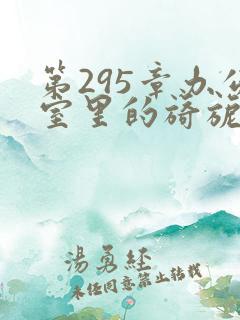 第295章办公
室里的旖旎
湯勇経
未经同意禁止转载